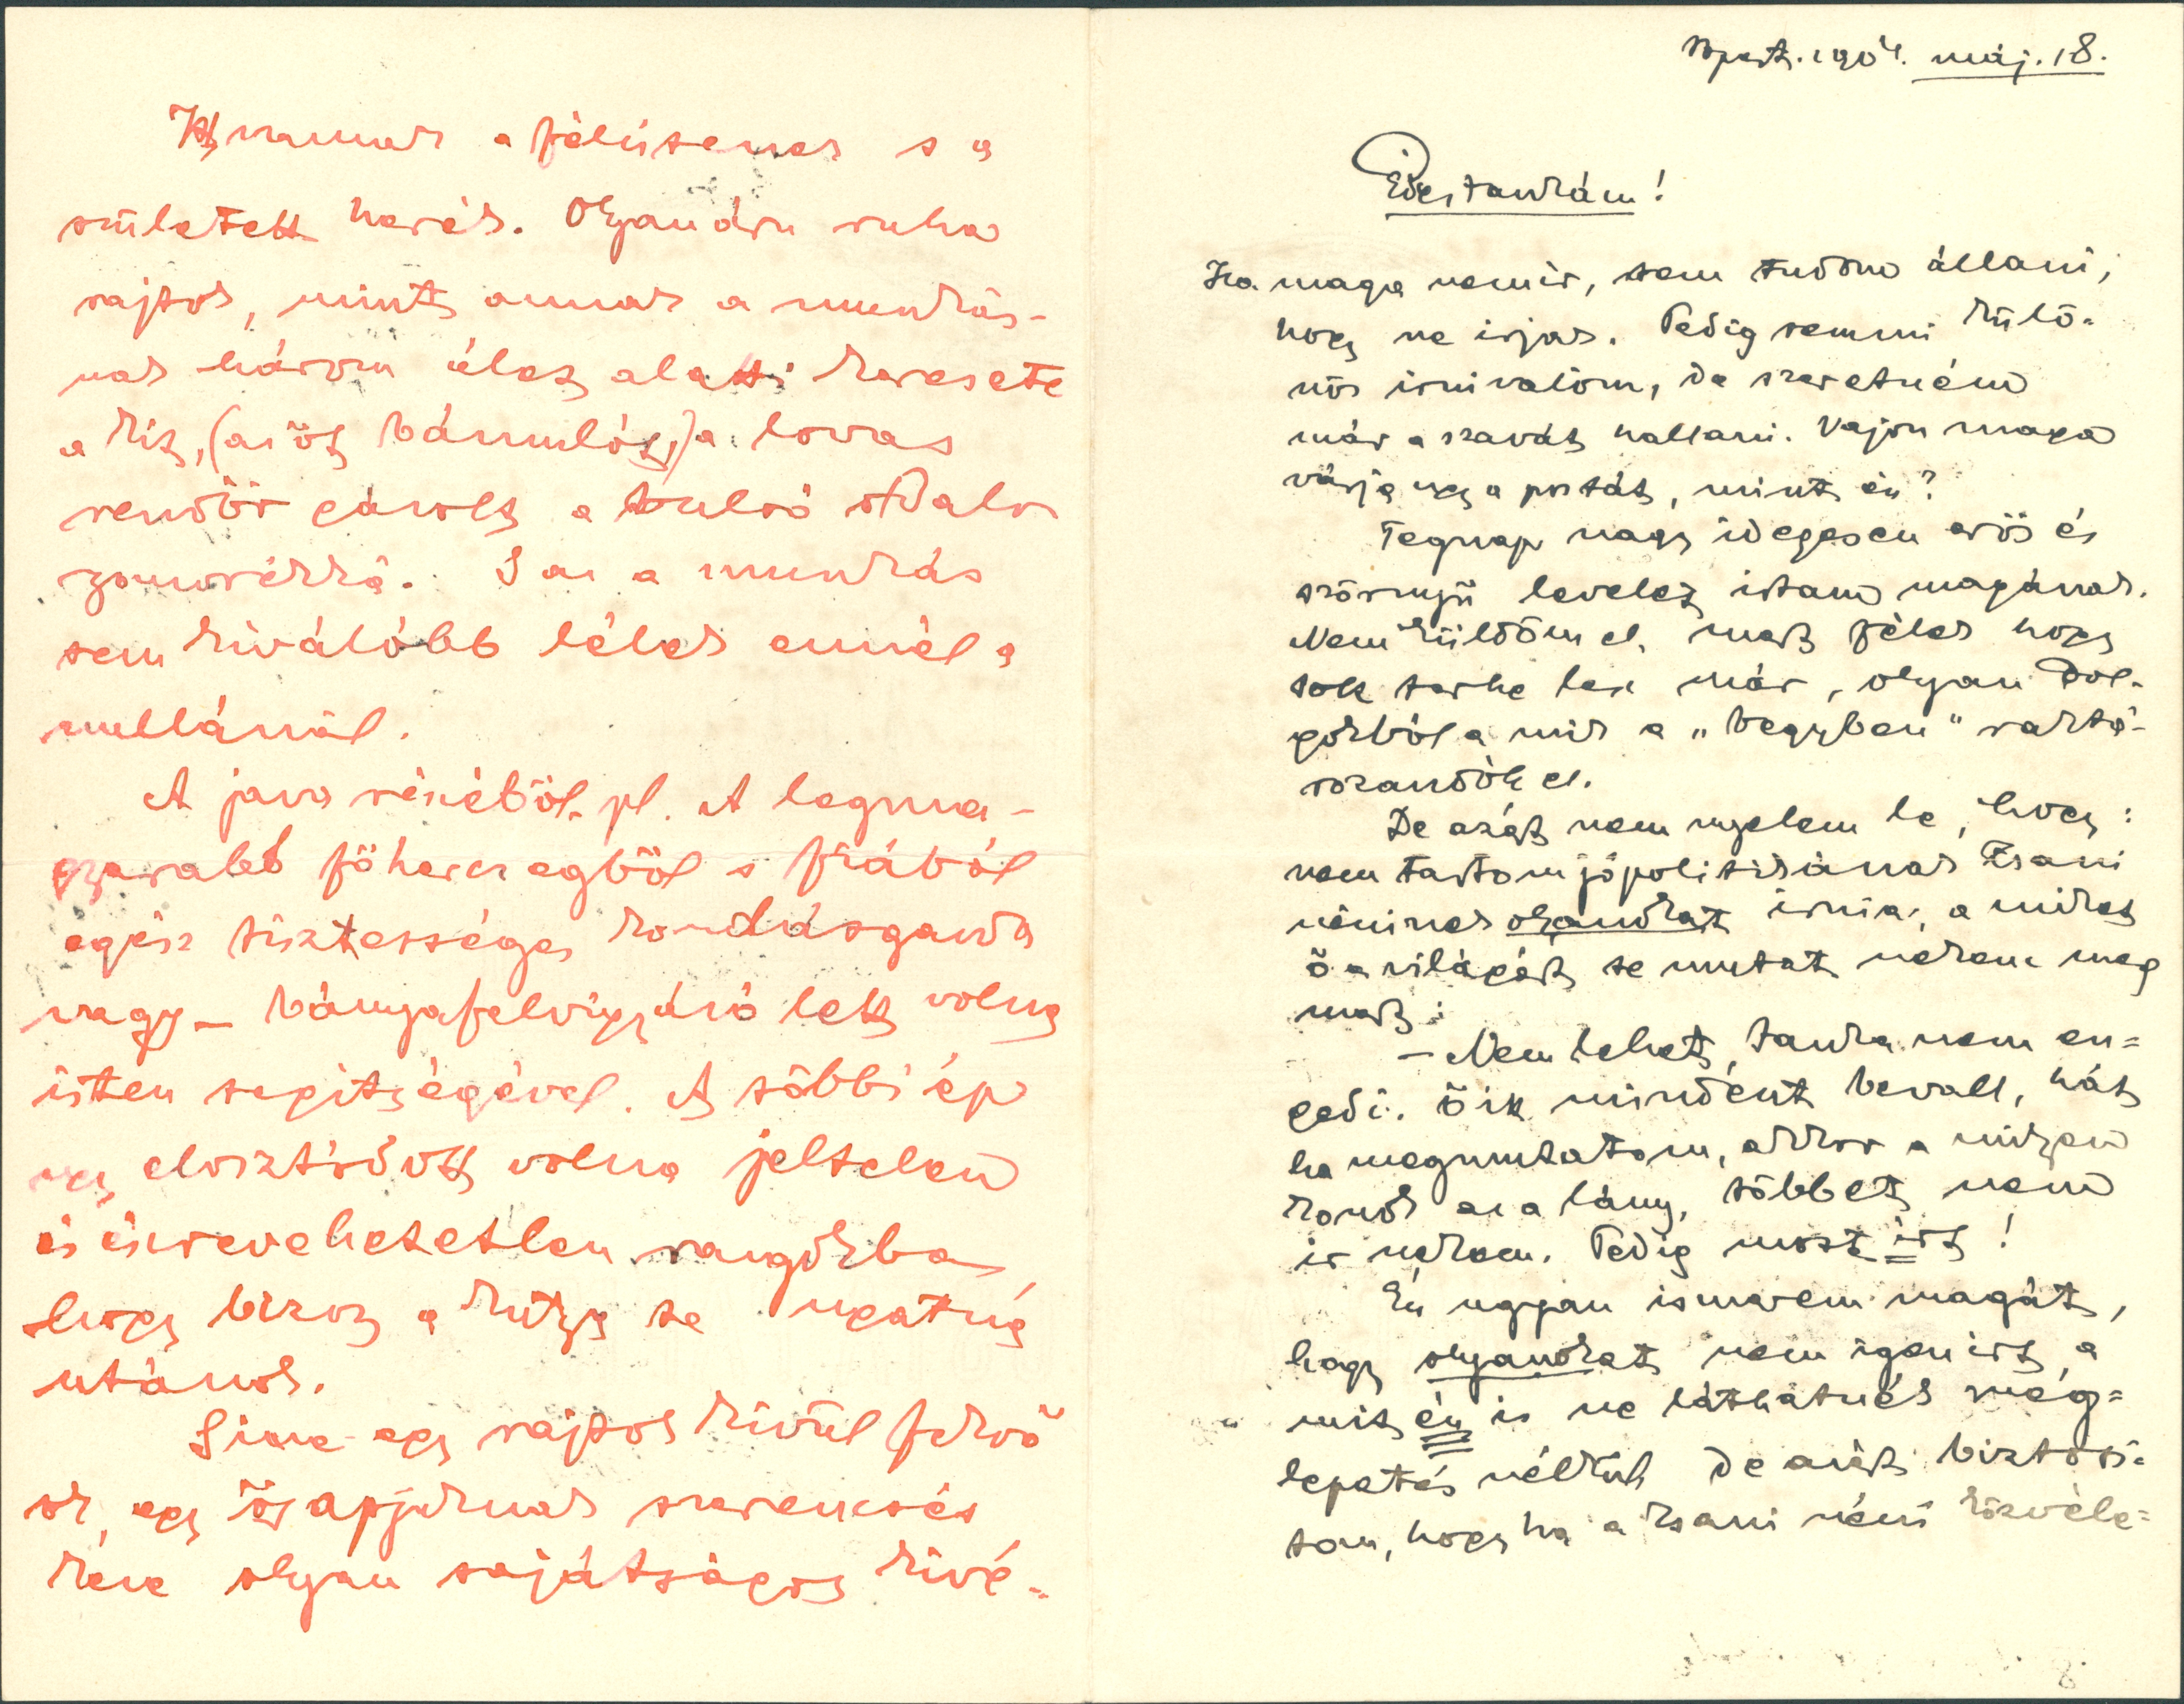 Itt vannak a félistenek s a
született herék. Olyan áru ruha
rajtok, mint annak a munkás-
nak három élet alatti keresete
a kit, (az őt bámulót,) a lovas
rendőr gázolt a tulsó oldalon
S az a munkás
sem kiválóbb lélek ennél a
nullánál.
A java részéből pl. A legma-
gyarabb főhercegből s fiából
egész tisztességes kondásgazda
vagy – bányafelvigyázó lett volna
isten segitségével. A többi ép
ugy elosztódott volna jeltelen
és észrevehetetlen rangokba,
hogy bizony a kutya se ugatná
utánok.
S ime egy rajtok kivül fekvő
ok, egy ősapjoknak szerencsés
olyan sajátságos kivé-
Bpest. 1904. máj. 18.
Édes Jankám!
Ha maga nem ir, sem tudom állani,
hogy ne irjak. Pedig semmi külö-
nös irnivalóm, de szeretném
már a szavát hallani. Vajon maga
várja ugy a postát, mint én?
Tegnap nagy idegesen erős és
szörnyü levelet irtam magának.
Nem küldöm el, mert félek hogy
sok terhe lesz már, olyan dol-
gokból a mik a „begyben" raktá-
rozandók el.
De azért nem nyelem le, hogy:
nem tartom jó politikának Zsani
néninek olyanokat irnia, a miket
ő a világért se mutat nekem meg
mert:
– Nem lehet, Janka nem en-
gedi. Ő itt mindent bevall, hát
ha megmutatom, akkor a milyen
konok az a lány, többet nem
ir nekem. Pedig most irt!
Én ugyan ismerem magát,
hogy olyanokat nem igen irt, a
mit én is ne láthatnék meg-
lepetés nélkül de azért biztosi-
tom, hogy ha a Zsani néni közvele-